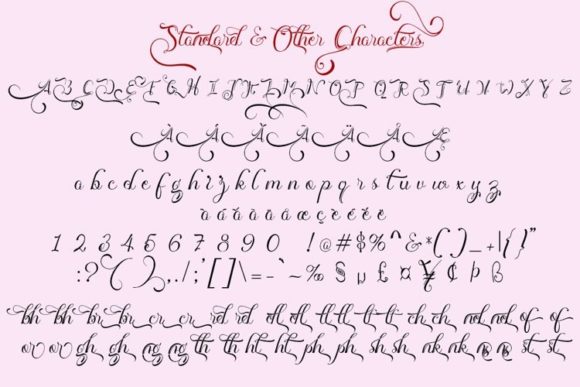 Standard & Other Characters
A B C D E F G H I J K L M N O P Q R S T U V W X Y Z
À Á Â Ã Ä Å Æ
a b c d e f g h i j k l m n o p q r s t u v w x y z
à á â ã ä å æ ç è é ê ë
1 2 3 4 5 6 7 8 9 0 ! @ # $ % ^ & * ( ) _ + | { } "
: ? , . / ; ' [ ] \ = - ` ~ ‰ § µ £ ¤ ¥ ¢ þ ß
bh bh br br cr cr rd rd fl fl tl tl t t ch ch nd nd of of
or or gh gh ng ng th th ht ht ph ph sh sh nk nk st st